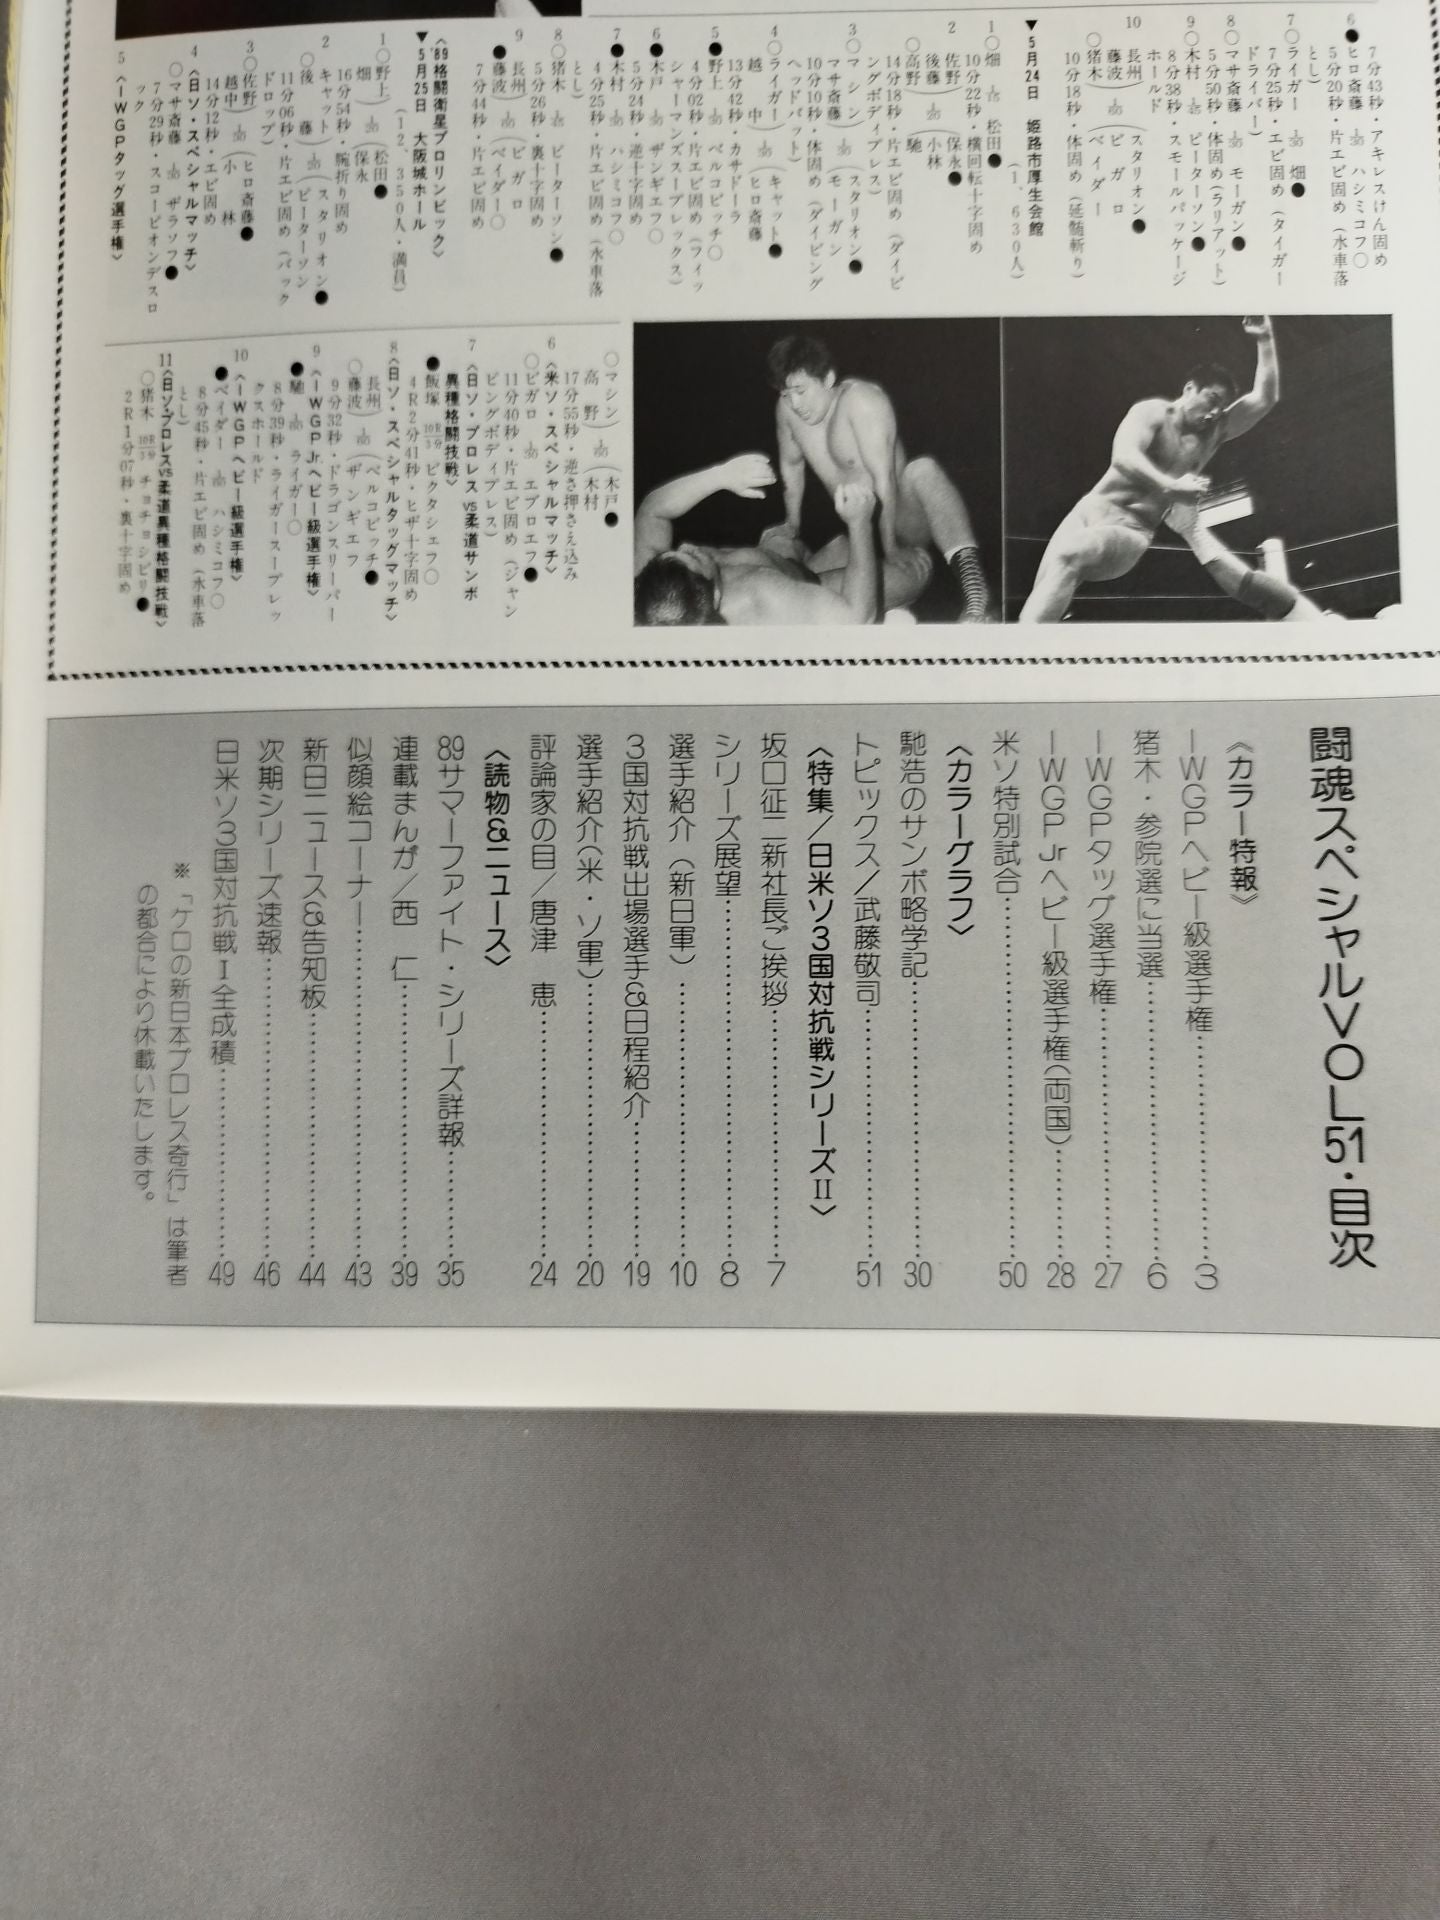 7分43秒・アキレスけん固め
6●ヒロ斎藤 1/30 ハシミコフ○
5分20秒・片エビ固め(水車落
とし)
7○ライガー 1/30 畑●
7分25秒・エビ固め(タイガー
ドライバー)
8○マサ斎藤 1/30 モーガン●
5分50秒・体固め(ラリアット)
9○木村 ピーターソン●
8分38秒・スモールパッケージ
ホールド
10 長州 スタリオン●
藤波) (ビガロ
○猪木 ベイダー
10分18秒・体固め(延髄斬り)
▼5月24日 姫路市厚生会館
(1、630人)
1○畑 松田●
10分22秒・横回転十字固め
2 佐野) (保永●
後藤 小林
○高野 馳
14分18秒・片エビ固め(ダイビ
ングボディプレス)
3○マシン) (スタリオン●
マサ斎藤 モーガン
10分10秒・体固め(ダイビング
ヘッドバット)
4○ライガー) (キャット●
越中 ヒロ斎藤
13分42秒・カサドーラ
5●野上 1/30 ベルコビッチ○
4分02秒・片エビ固め(フィッ
シャーマンズスープレックス)
6●木戸 1/30 ザンギエフ○
5分24秒・逆十字固め
7●木村 1/30 ハシミコフ○
4分25秒・片エビ固め(水車落
とし)
8○猪木 ピーターソン●
5分26秒・裏十字固め
9 長州) (ビガロ
●藤波 ベイダー○
7分44秒・片エビ固め
〈'89格闘衛星プロリンピック〉
▼5月25日 大阪城ホール
(12、350人・満員)
1○野上) (松田●
畑 保永
16分54秒・腕折り固め
2 キャット) (スタリオン●
○後藤 ピーターソン
11分06秒・片エビ固め(バック
ドロップ)
3○佐野) (ヒロ斎藤●
越中 小林
14分12秒・エビ固め
4〈日・ソ・スペシャルマッチ〉
○マサ斎藤 1/30 ザラソフ●
7分29秒・スコーピオンデスロ
ック
5〈IWGPタッグ選手権〉
○マシン) (木戸●
高野 木村
17分55秒・逆さ押さえ込み
6〈米・ソ・スペシャルマッチ〉
○ビガロ エブロエフ●
11分40秒・片エビ固め(ジャン
ピングボディプレス)
7〈日・ソ・プロレスvs柔道サンボ
異種格闘技戦〉
●飯塚 10R/3分 ビクタシェフ○
4R2分41秒・ヒザ十字固め
8〈日・ソ・スペシャルタッグマッチ〉
長州) (ベルコビッチ●
○藤波 ザンギエフ
9分32秒・ドラゴンスリーパー
9〈IWGPJr.ヘビー級選手権〉
●馳 ライガー○
8分39秒・ライガースープレッ
クスホールド
10〈IWGPヘビー級選手権〉
●ベイダー ハシミコフ○
8分45秒・片エビ固め(水車落
とし)
11〈日・ソ・プロレスvs柔道異種格闘技戦〉
○猪木 10R/3分 チョチョシビリ●
2R1分07秒・裏十字固め
闘魂スペシャルVOL51・目次
〈カラー特報〉
IWGPヘビー級選手権……3
猪木・参院選に当選……6
IWGPタッグ選手権……27
IWGP Jrヘビー級選手権(両国)……28
米ソ特別試合……50
〈カラーグラフ〉
馳浩のサンボ略学記……30
トピックス/武藤敬司……51
〈特集/日米ソ3国対抗戦シリーズII〉
坂口征二新社長ご挨拶……7
シリーズ展望……8
選手紹介(新日軍)……10
3国対抗戦出場選手&日程紹介……19
選手紹介(米・ソ軍)……20
評論家の目/唐津 恵……24
〈読物&ニュース〉
89サマーファイト・シリーズ詳報……35
連載まんが/西 仁……39
似顔絵コーナー……43
新日ニュース&告知板……44
次期シリーズ速報……46
日米ソ3国対抗戦I全成積……49
※「ケロの新日本プロレス奇行」は筆者
の都合により休載いたします。